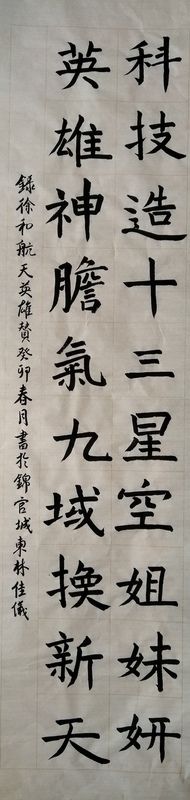 科技造十三星空姐妹妍
英雄神膽氣九域换新天
錄徐和航天英雄贊癸卯春月書於錦官城東林佳儀